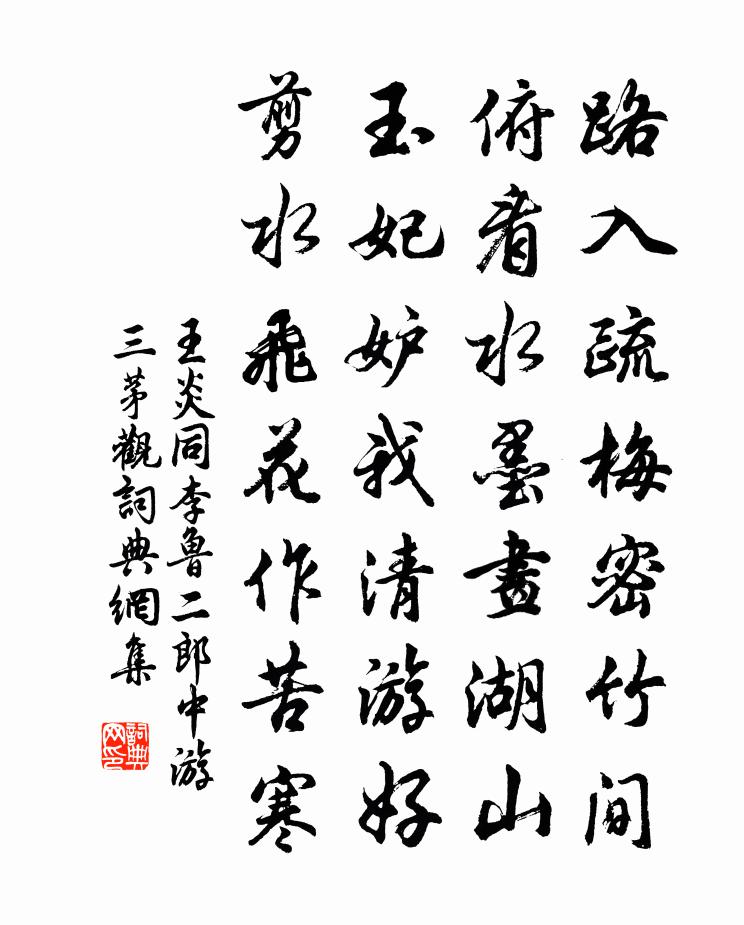 路入疏梅密竹间
俯看水墨畫湖山
玉妃妒我清游好
剪水飛花作苦寒
王炎同李魯二郎中游
三茅觀詞典網集
詞典
网印